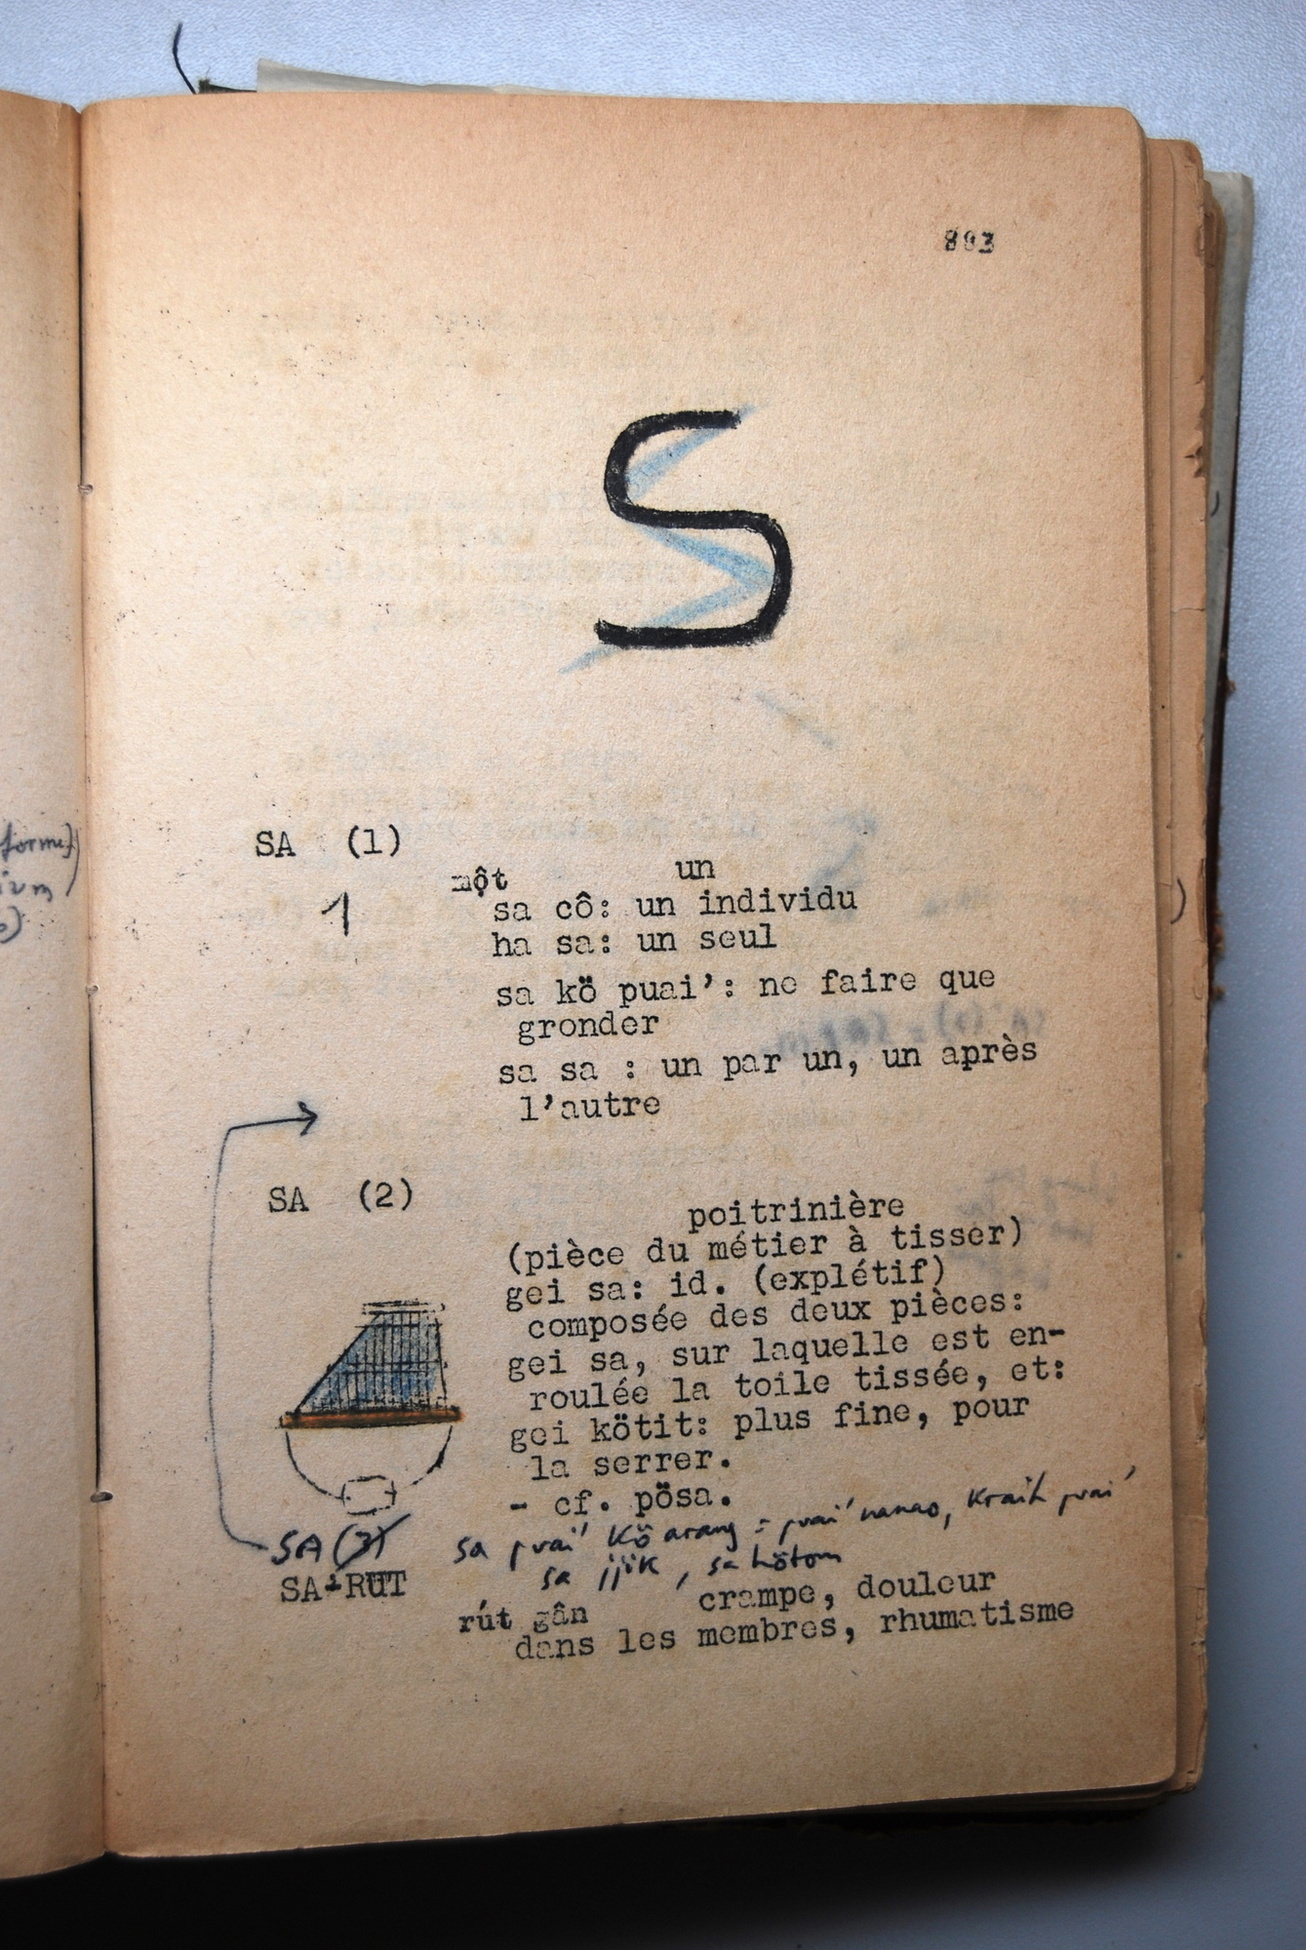 893
S
SA (1)
một un
1 sa cô: un individu
ha sa: un seul
sa kö puai': ne faire que
gronder
sa sa : un par un, un après
l'autre
SA (2)
poitrinière
(pièce du métier à tisser)
gei sa: id. (explétif)
composée des deux pièces:
gei sa, sur laquelle est en-
roulée la toile tissée, et:
gei kötit: plus fine, pour
la serrer.
- cf. pösa.
SA (3) sa puai' kö arang = puai' nanao, kraih puai'
sa jiök, sa hötom
SA-RUT
crampe, douleur
rút gân
dans les membres, rhumatisme